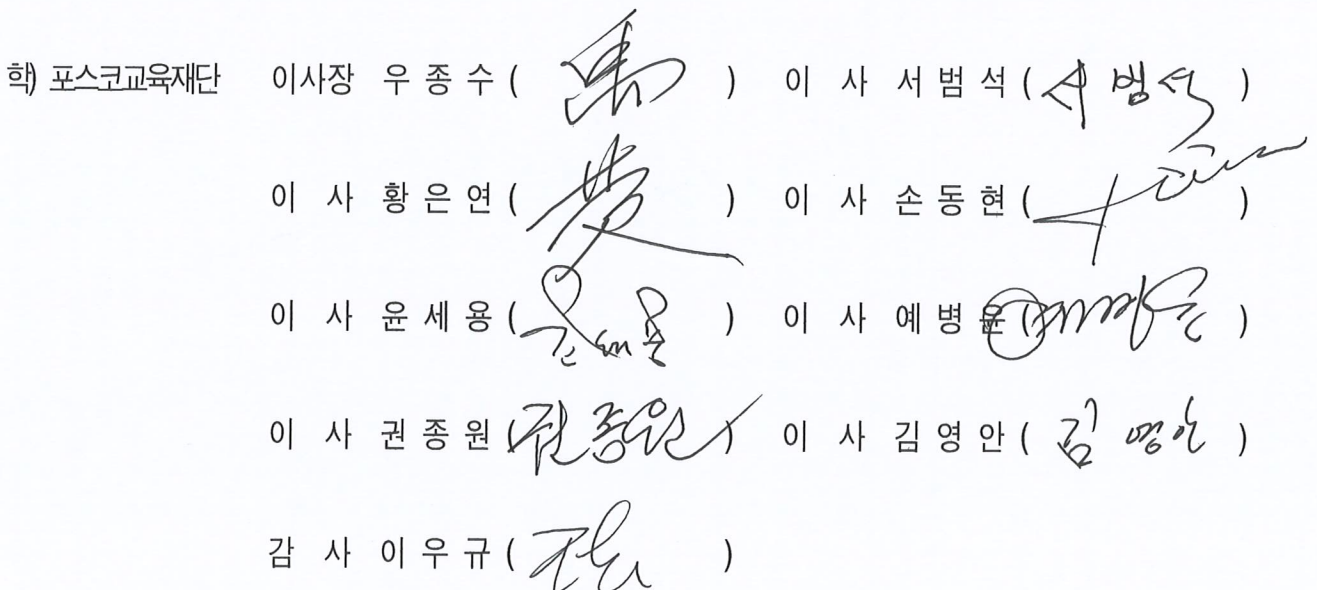 학) 포스코교육재단 이사장 우종수 ( ) 이 사 서범석 (서범석)
이 사 황은연 ( ) 이 사 손동현 ( )
이 사 윤세용 ( ) 이 사 예병윤 ( )
이 사 권종원 (권종원) 이 사 김영안 (김영안)
감 사 이우규 ( )